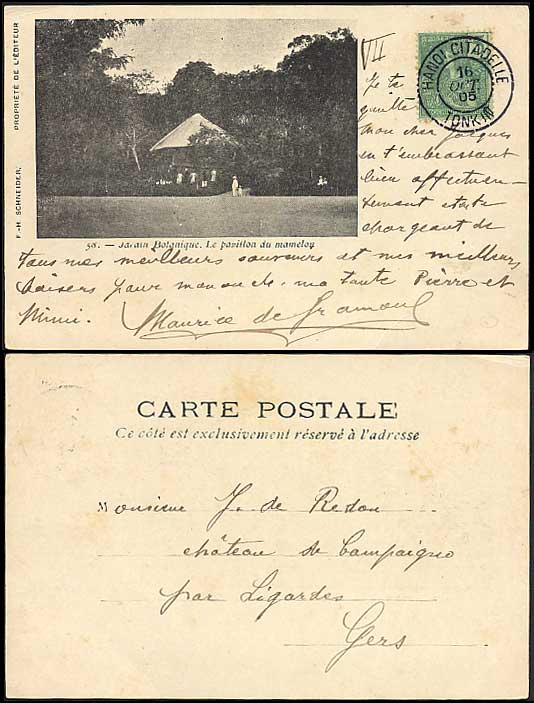 PROPRIÉTÉ DE L'ÉDITEUR
F.-H. SCHNEIDER.
58. — Jardin Botanique. Le pavillon du mamelon
VII
HANOI-CITADELLE
16
OCT
05
TONKIN
Je te
quitte
mon cher Jacques
en t'embrassant
bien affectueu-
sement et te
chargeant de
tous mes meilleurs souvenirs et mes meilleurs
baisers pour mon oncle, ma tante Pierre et
Mimi.
Maurice de
CARTE POSTALE
Ce côté est exclusivement réservé à l'adresse
Monsieur J. de Redon
château de Campaigno
par Ligardes
Gers